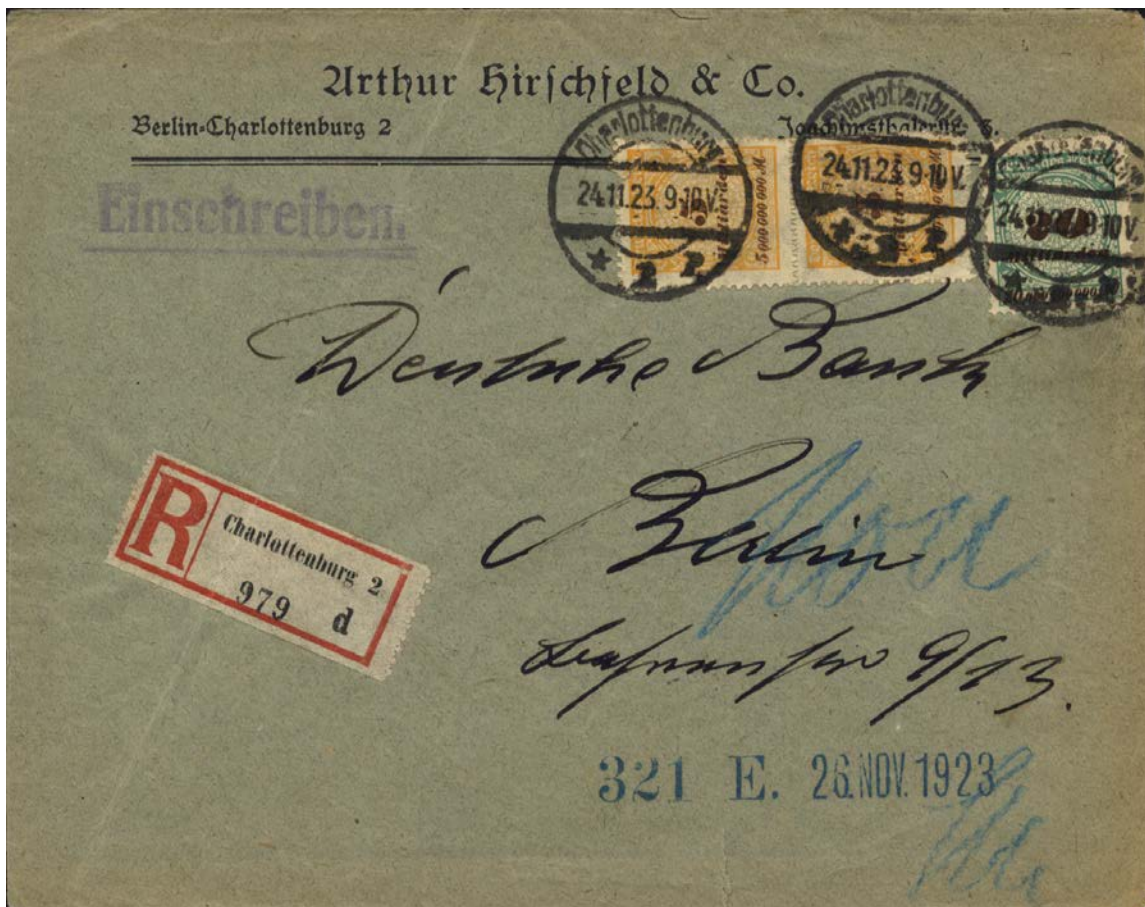 Arthur Hirschfeld & Co.
Berlin-Charlottenburg 2
Joachimsthalerstr. 3.
Einschreiben.
Charlottenburg
24.11.23. 9-10V.
* 2 2
5 000 000 000 M
Charlottenburg
24.11.23. 9-10V.
24.11.23. 9-10V.
20
Milliarden
Deutsche Bank
Berlin
9/13.
R
Charlottenburg 2
979 d
321 E. 26.NOV.1923